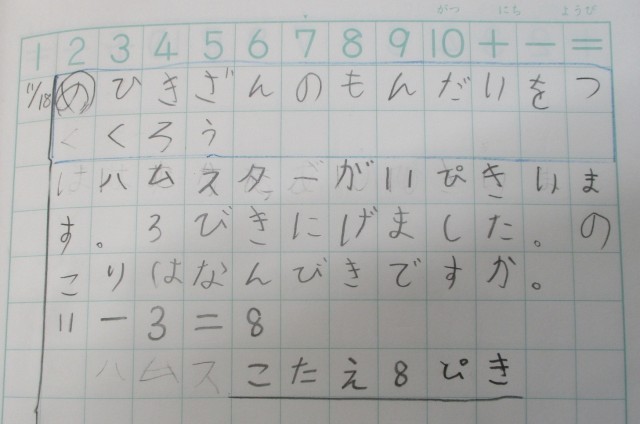 がつ にち ようび
1 2 3 4 5 6 7 8 9 10 + − =
11/18 め ひきざんのもんだいをつ
くくろう
はハムスターが11ぴきいま
す。3びきにげました。の
こりはなんびきですか。
11−3=8
ハムスこたえ8ぴき